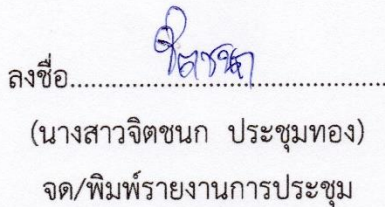 ลงชื่อ........จิตชนก........
(นางสาวจิตชนก ประชุมทอง)
จด/พิมพ์รายงานการประชุม